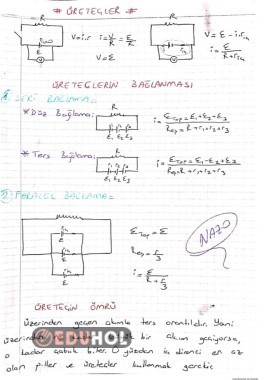 # ÜRETEÇLER #
R
R
V=i.r
i=V/R=E/R
V=E
V=E-i.riç
i=E/R+riç
ÜRETEÇLERİN BAĞLANMASI
1) SERİ BAĞLAMA:
* Düz Bağlama:
R
E1 E2 E3
i=ETop=E1+E2+E3/Reş=R+r1+r2+r3
* Ters Bağlama:
R
E1 E2 E3
i=ETop=E1-E2+E3/Reş=R+r1+r2+r3
2) PARALEL BAĞLAMA:
R
E
E
E
ETop=E
Reş=r/3
i=E/R+r/3
NAZO
ÜRETECİN ÖMRÜ
Üzerinden geçen akımla ters orantılıdır. Yani
üzerinden bir akım geçiyorsa,
o kadar çabuk biter. O yüzden iç direnci en az
olan piller ve üreteçler kullanmak gerekir
EDUHOL